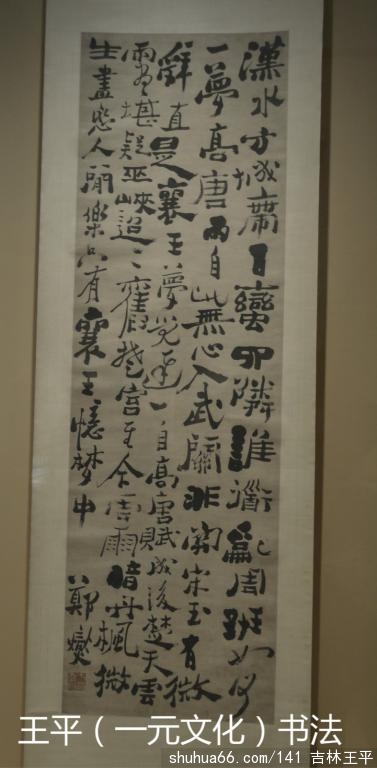 漢水方城帶百蠻四隣誰道亂周班如何
一夢高唐雨自此無心入武關非關宋玉有微
辭直是襄王夢覺遲一自高唐賦成後楚天雲
雨盡堪疑巫峽迢迢舊楚宮至今雲雨暗丹楓微
生盡戀人間樂只有襄王憶梦中
鄭燮
王平（一元文化）书法
shuhua66.com/141 吉林王平